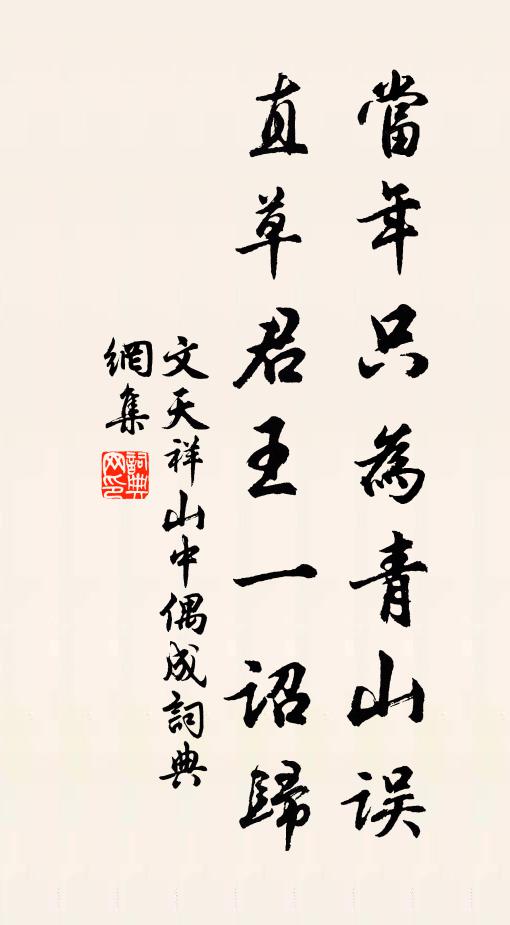 當年只為青山误
直草君王一詔歸
文天祥山中偶成詞典
網集
詞典
网印